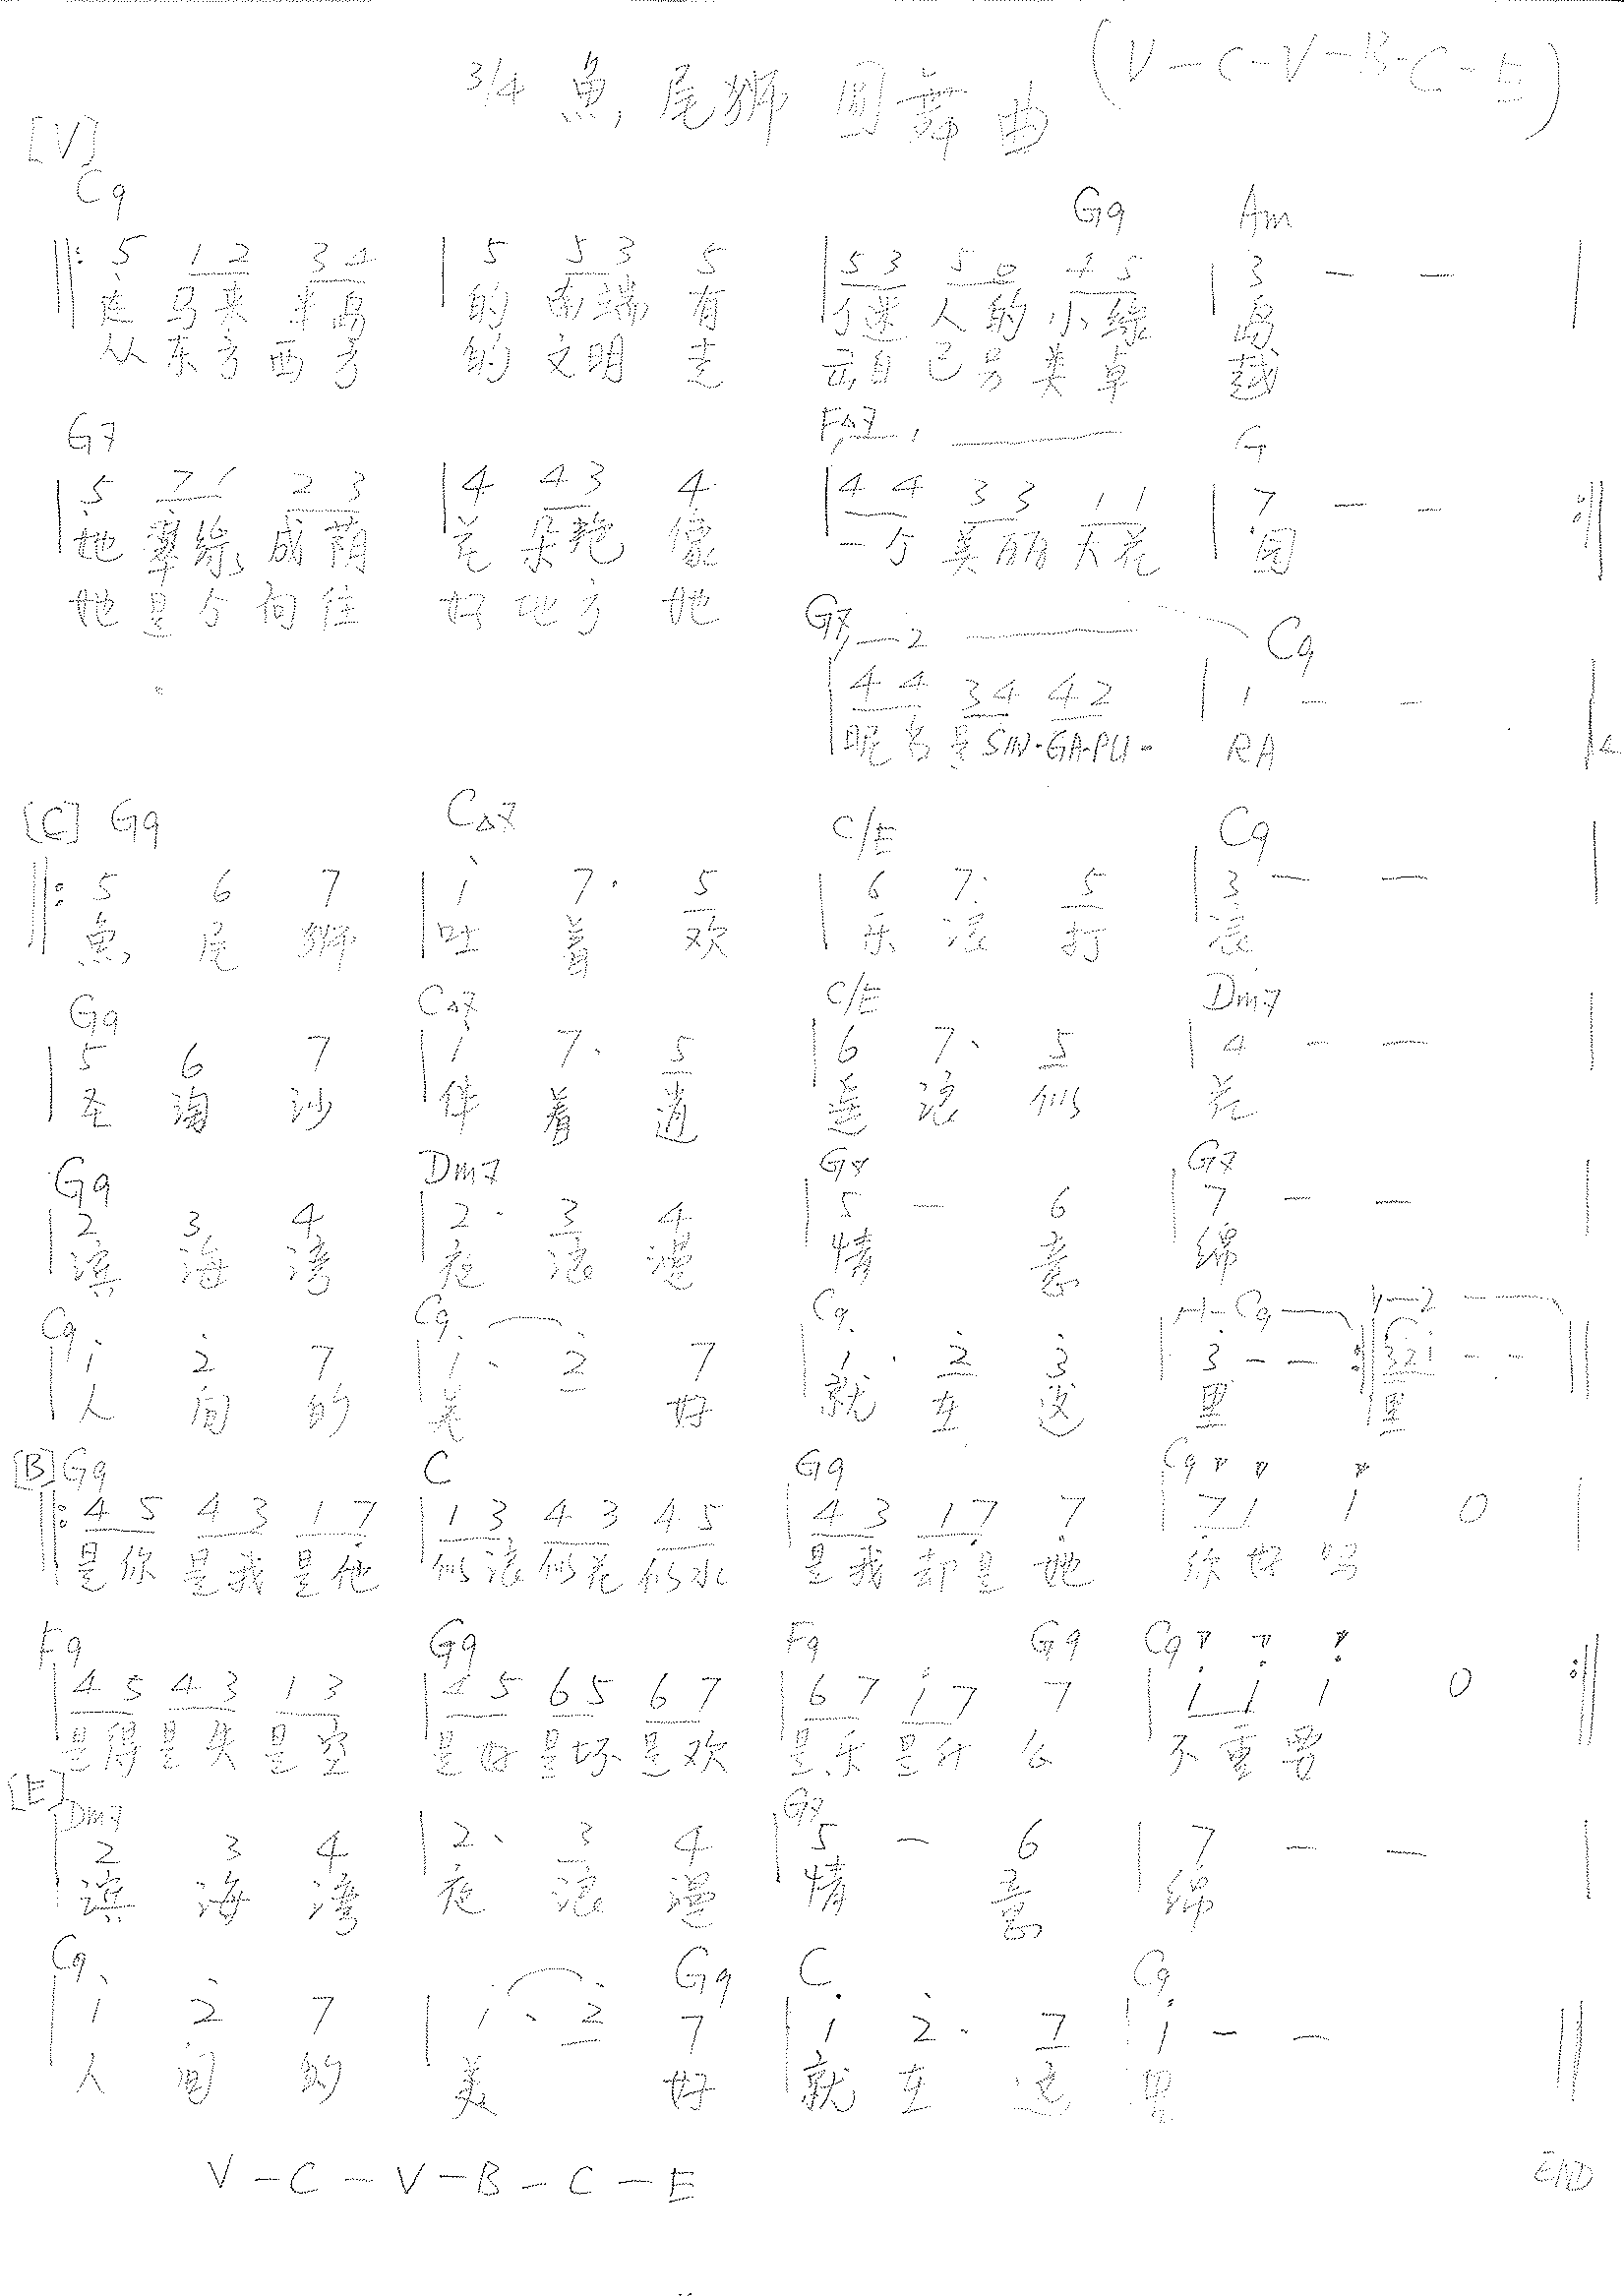 3/4 魚尾狮圆舞曲 (V-C-V-B-C-E)
[V]
C9 G9 Am
‖: 5 1 2 3 4 | 5 5 3 5 | 5 3 5 0 4 5 | 3 - - |
在马来半岛 的南端有 个迷人的小绿 岛
从东方西方 的文明走 出自己另类卓 越
G7 F△7 1 G
| 5 7 1 2 3 | 4 4 3 4 | 4 4 3 3 1 1 | 7 - - :‖
她翠绿成荫 花朵艳像 一个美丽大花 园
她是个向往 好地方她
G7 2 C9
| 4 4 3 4 4 2 | 1 - - |
昵名是SIN·GA·PU- RA
[C] G9 C△7 C/E C9
‖: 5 6 7 | 1 7· 5 | 6 7· 5 | 3 - - |
魚尾狮 吐着欢 乐浪打 滚
G9 C△7 C/E Dm7
| 5 6 7 | 1 7· 5 | 6 7· 5 | 4 - - |
圣淘沙 伴着逍 遥浪似 花
G9 Dm7 G7 G7
| 2 3 4 | 2· 3 4 | 5 - 6 | 7 - - |
滨海湾 夜浪漫 情意 绵
C9 C9 C9 1 C9 2
| 1 2 7 | 1· 2 7 | 1· 2 3 | 3 - - :‖ 321 - - ‖
人间的 美好 就在这 里 里
[B] G9 C G9 C9
‖: 4 5 4 3 1 7 | 1 3 4 3 4 5 | 4 3 1 7 7 | 7 1 1 0 |
是你是我是他 似浪似花似水 是我却是她 你好吗
F9 G9 F9 G9 C9
| 4 5 4 3 1 3 | 4 5 6 5 6 7 | 6 7 1 7 7 | 1 1 1 0 :‖
是得是失是空 是好是坏是欢 是乐是什么 不重要
[E]
Dm7 G7
| 2 3 4 | 2· 3 4 | 5 - 6 | 7 - - |
滨海湾 夜浪漫 情意 绵
C9 G9 C C9
| 1 2 7 | 1· 2 7 | 1 2· 7 | 1 - - ‖
人间的 美好 就在这 里
V - C - V - B - C - E END